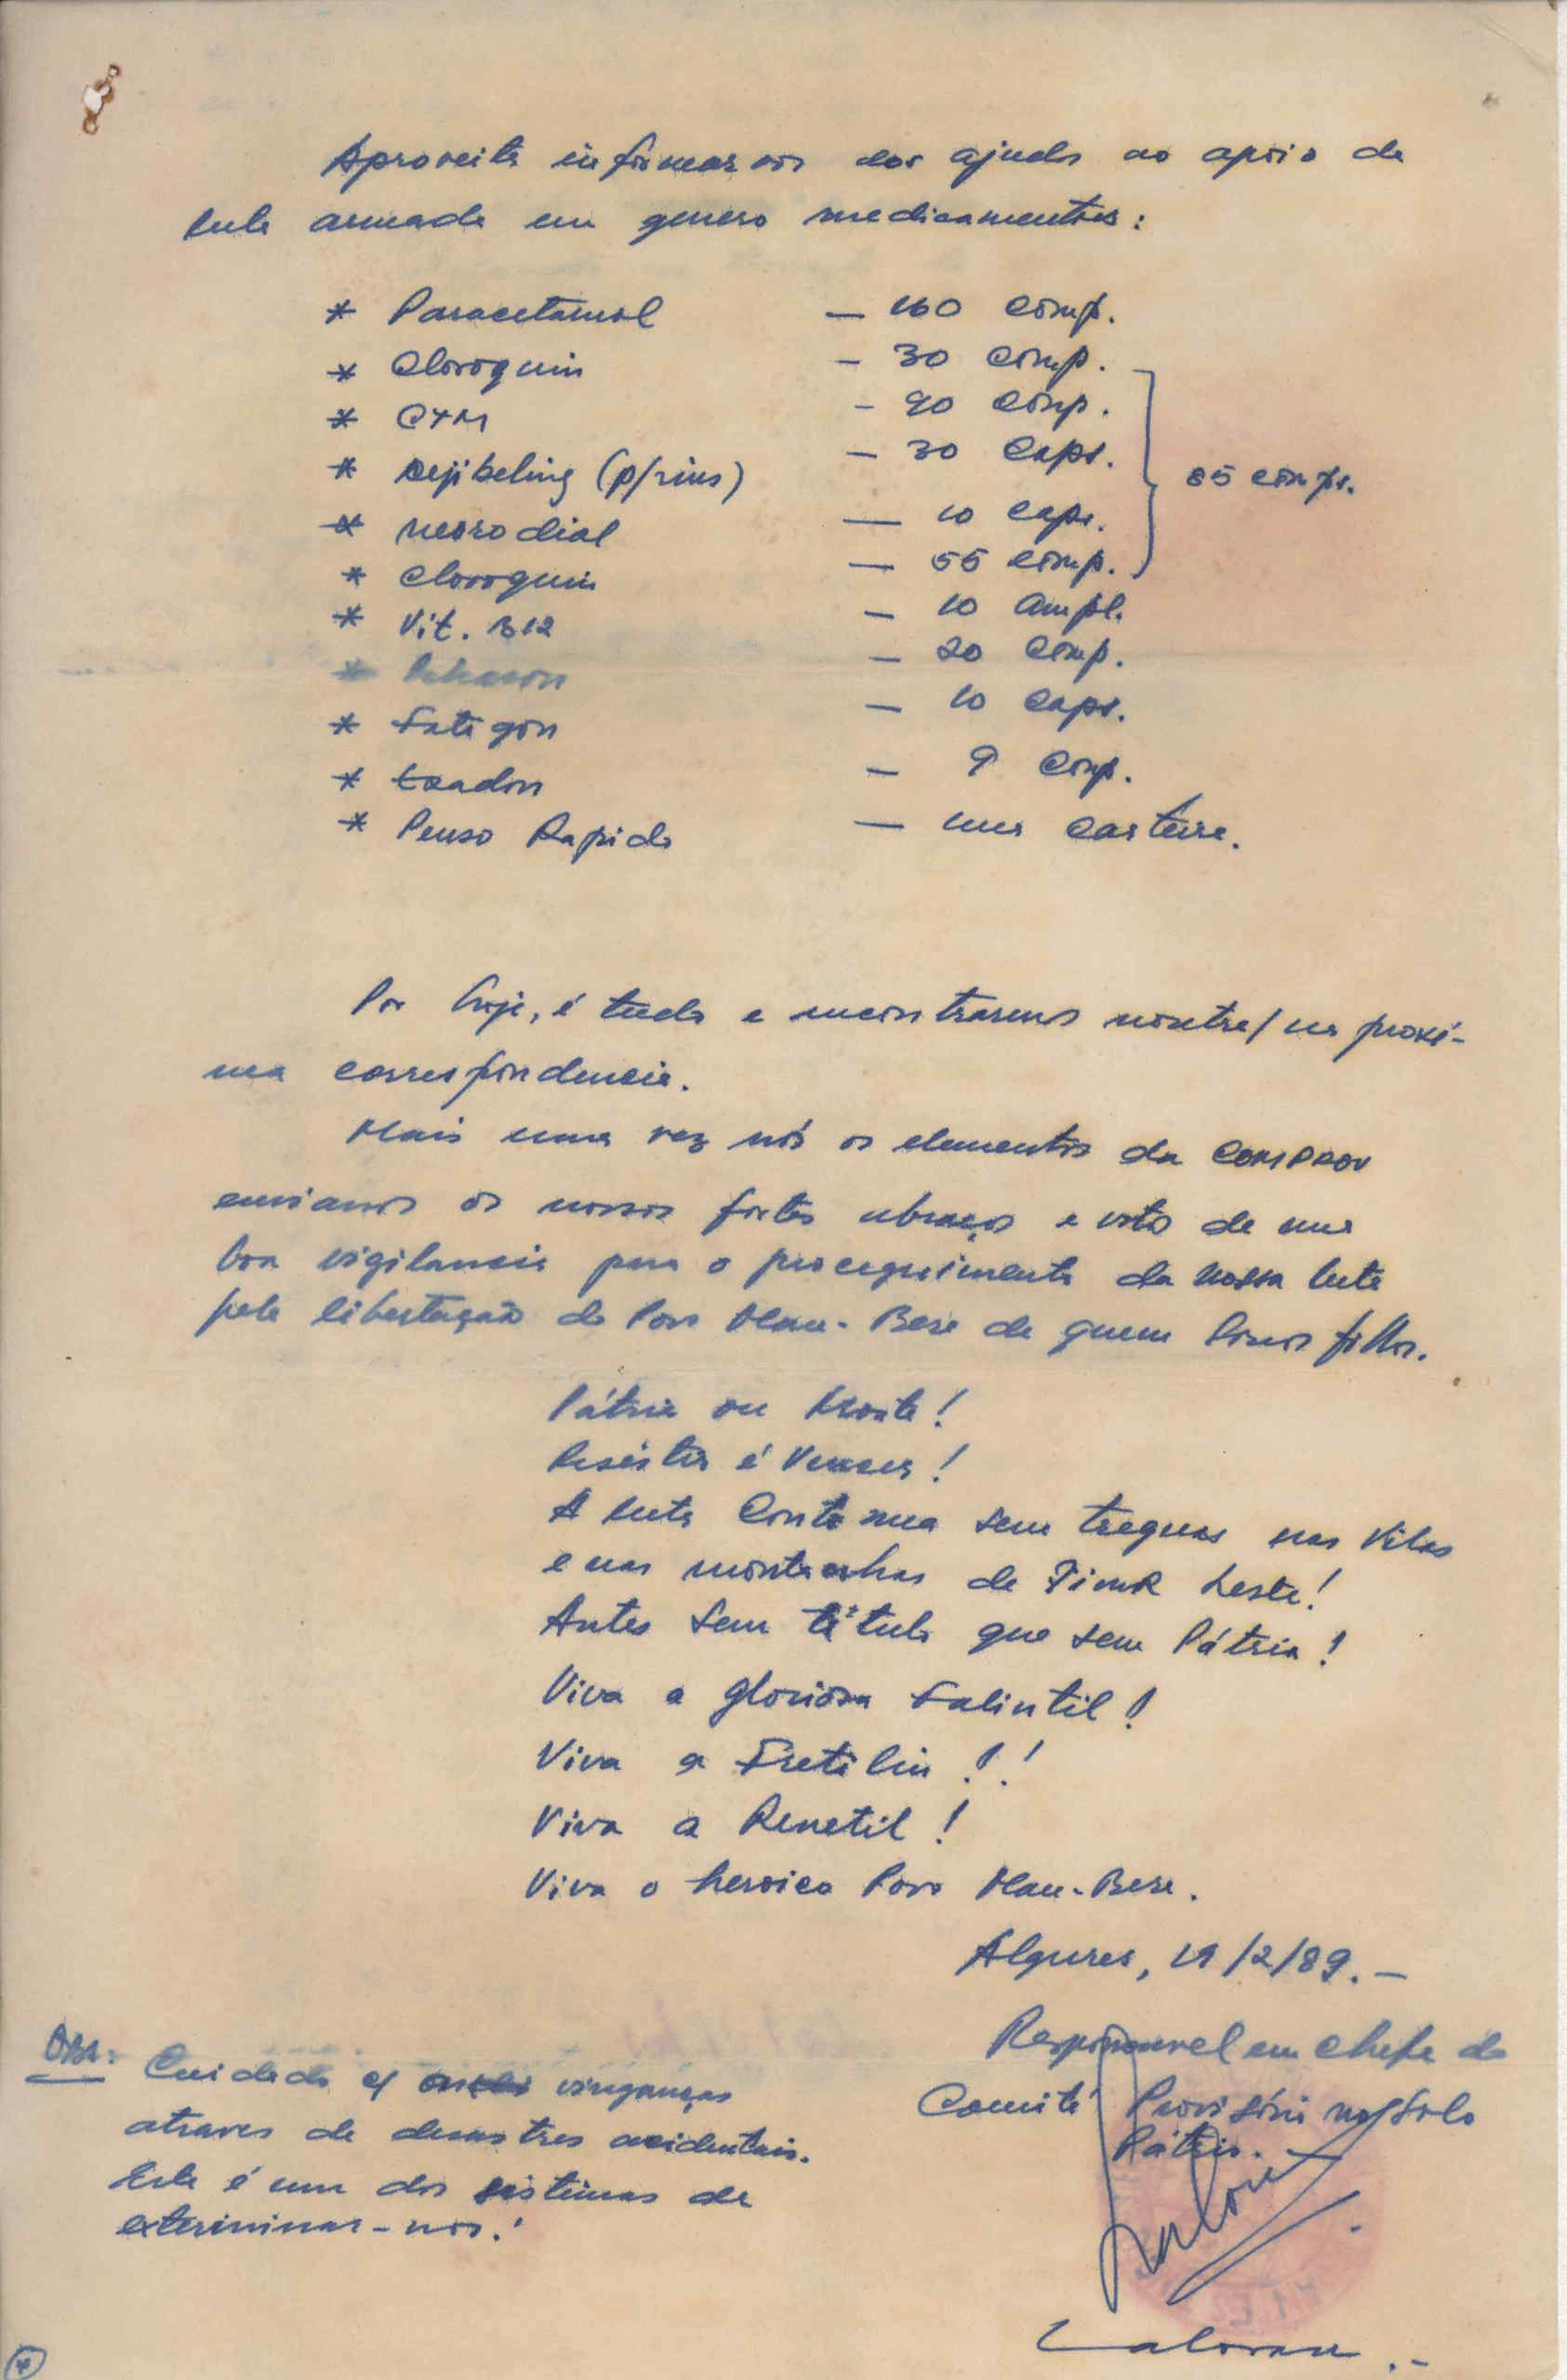 Aproveito informar vos dos ajuda ao apoio da
luta armada em genero medicamentos:
* Paracetamol — 160 comp.
* Cloroquin — 30 comp.
* CTM — 90 comp.
* Kejibeling (p/rins) — 30 Caps.
* neurodial — 10 caps.
85 comps.
* Cloroquin — 55 comp.
* Vit. B12 — 10 ampl.
* — 20 comp.
* Fatigon — 10 caps.
* — 9 Comp.
* Penso Rapido — uma carteira.
Por hoje, é tudo e encontraremos noutra/na proxi-
ma correspondencia.
Mais uma vez nós os elementos da COMPROV
enviamos os nossos fortes abraços e voto de uma
boa vigilancia para o proceguimento da nossa luta
pela libertação do Povo Mau-Bere de quem somos filhos.
Pátria ou Morte!
Resistir é Vencer!
A luta Continua sem treguas nas Vilas
e nas montanhas de Timor Leste!
Antes Sem título que sem Pátria!
Viva a gloriosa Falintil!
Viva a Fretilin!!
Viva a Renetil!
Viva o heroico Povo Mau-Bere.
Algures, 19/2/89.—
Responsavel em chefe do
Comité Provisório no Solo
Pátrio.—
Obs: Cuidado c/ vinganças
atraves de desastres acidentais.
Este é um dos sistemas de
exterminar-nos!